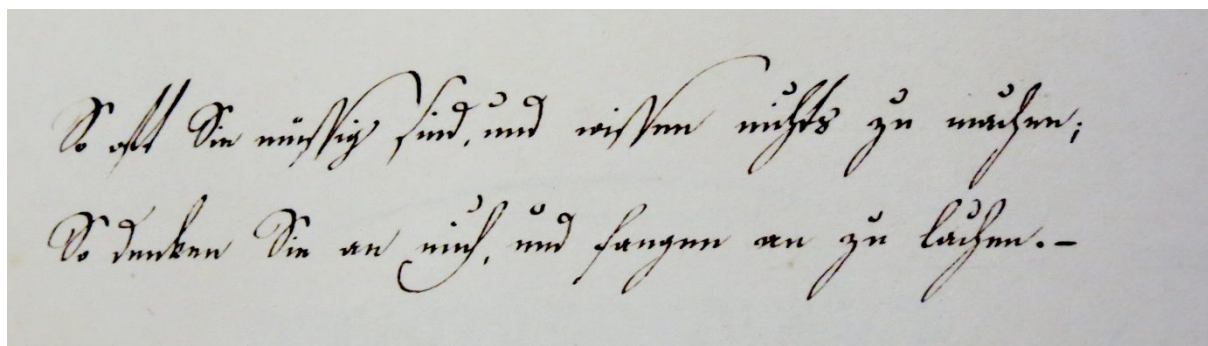 So oft Sie müssig sind, und wissen nichts zu machen;
So denken Sie an mich, und fangen an zu lachen. –